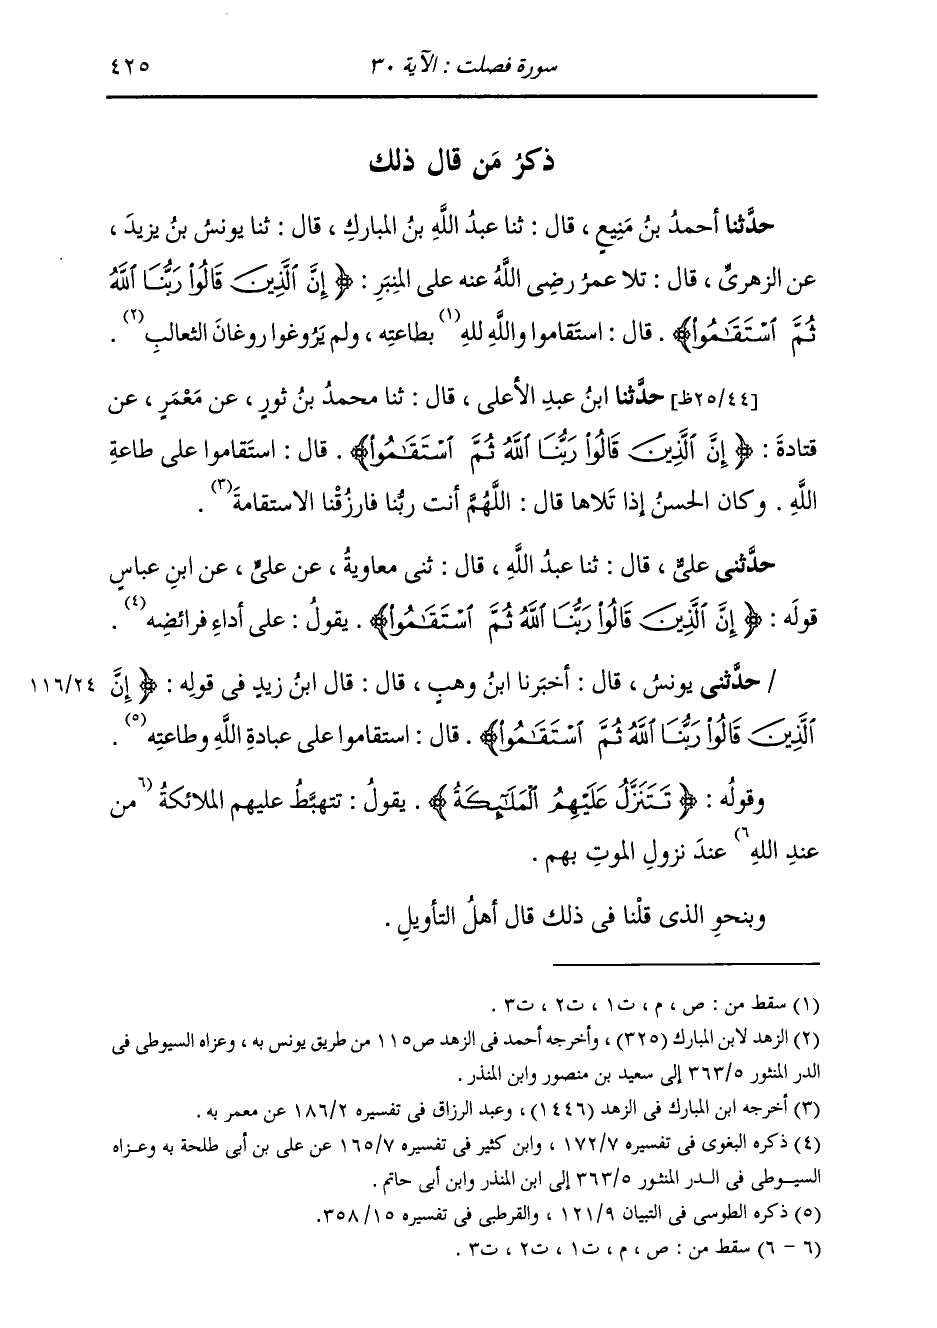 سورة فصلت : الآية ٣٠ ٤٢٥
ذكرُ مَن قال ذلك
حدَّثنا أحمدُ بنُ مَنِيعٍ ، قال : ثنا عبدُ اللَّهِ بنُ المباركِ ، قال : ثنا يونسُ بنُ يزيدَ ،
عن الزهرىِّ ، قال : تلا عمرُ رضِى اللَّهُ عنه على المِنبَرِ : ﴿ إِنَّ ٱلَّذِينَ قَالُوا۟ رَبُّنَا ٱللَّهُ
ثُمَّ ٱسْتَقَـٰمُوا۟﴾ . قال : استَقاموا واللَّهِ للهِ(١) بطاعتِه ، ولم يَرُوغوا روغانَ الثعالبِ(٢) .
[٢٥/٤٤ظ] حدَّثنا ابنُ عبدِ الأعلى ، قال : ثنا محمدُ بنُ ثورٍ ، عن مَعْمَرٍ ، عن
قتادةَ : ﴿ إِنَّ ٱلَّذِينَ قَالُوا۟ رَبُّنَا ٱللَّهُ ثُمَّ ٱسْتَقَـٰمُوا۟﴾ . قال : استَقاموا على طاعةِ
اللَّهِ . وكان الحسنُ إذا تَلاها قال : اللَّهُمَّ أنت ربُّنا فارزُقْنا الاستقامةَ(٣) .
حدَّثنى علىٌّ ، قال : ثنا عبدُ اللَّهِ ، قال : ثنى معاويةُ ، عن علىٍّ ، عن ابنِ عباسٍ
قولَه : ﴿ إِنَّ ٱلَّذِينَ قَالُوا۟ رَبُّنَا ٱللَّهُ ثُمَّ ٱسْتَقَـٰمُوا۟﴾ . يقولُ : على أداءِ فرائضِه(٤) .
/ حدَّثنى يونسُ ، قال : أخبَرنا ابنُ وهبٍ ، قال : قال ابنُ زيدٍ فى قولِه : ﴿ إِنَّ ١١٦/٢٤
ٱلَّذِينَ قَالُوا۟ رَبُّنَا ٱللَّهُ ثُمَّ ٱسْتَقَـٰمُوا۟﴾ . قال : استقاموا على عبادةِ اللَّهِ وطاعتِه(٥) .
وقولُه : ﴿ تَتَنَزَّلُ عَلَيْهِمُ ٱلْمَلَـٰٓئِكَةُ ﴾ . يقولُ : تتهبَّطُ عليهم الملائكةُ (٦من
عندِ اللهِ٦) عندَ نزولِ الموتِ بهم .
وبنحوِ الذى قلْنا فى ذلك قال أهلُ التأويلِ .
(١) سقط من : ص ، م ، ت١ ، ت٢ ، ت٣ .
(٢) الزهد لابن المبارك (٣٢٥) ، وأخرجه أحمد فى الزهد ص١١٥ من طريق يونس به ، وعزاه السيوطى فى
الدر المنثور ٣٦٣/٥ إلى سعيد بن منصور وابن المنذر .
(٣) أخرجه ابن المبارك فى الزهد (١٤٤٦) ، وعبد الرزاق فى تفسيره ١٨٦/٢ عن معمر به .
(٤) ذكره البغوى فى تفسيره ١٧٢/٧ ، وابن كثير فى تفسيره ١٦٥/٧ عن على بن أبى طلحة به وعـزاه
السيـوطى فى الـدر المنثـور ٣٦٣/٥ إلى ابن المنذر وابن أبى حاتم .
(٥) ذكره الطوسى فى التبيان ١٢١/٩ ، والقرطبى فى تفسيره ٣٥٨/١٥.
(٦ - ٦) سقط من : ص ، م ، ت١ ، ت٢ ، ت٣ .